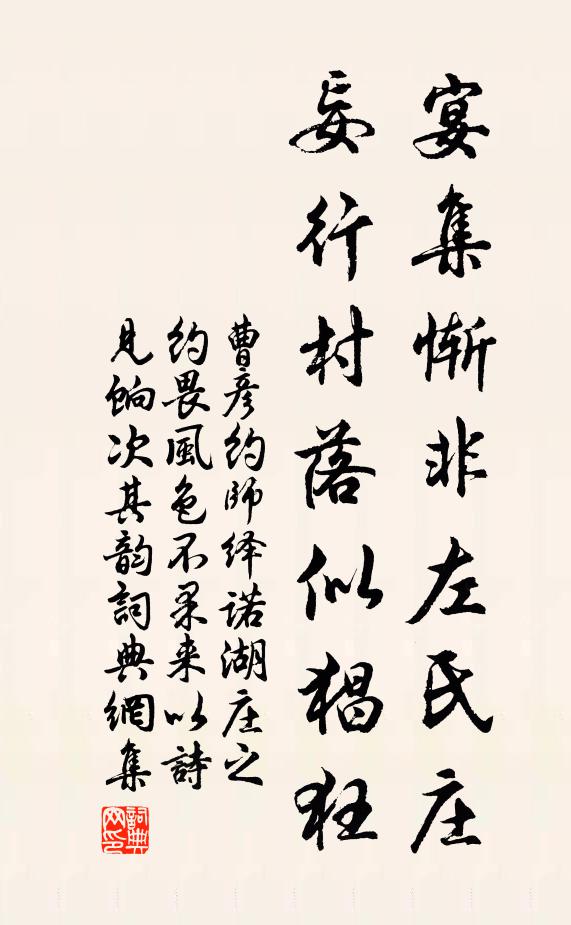 宴集惭非左氏庄
妄行村落似猖狂
曹彦约師绎诺湖庄之
约畏風色不果来以詩
見饷次其韵詞典網集
詞典网印